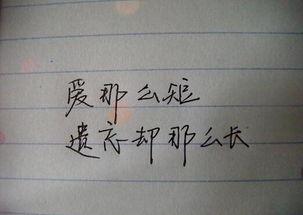 爱那么短
遗忘却那么长